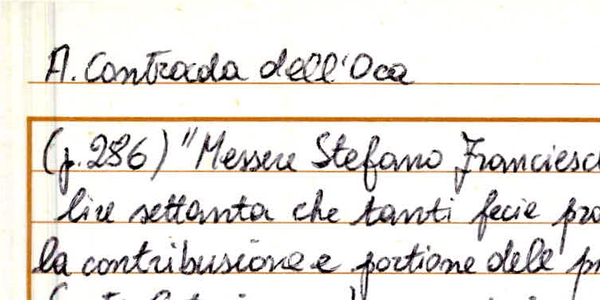 A. Contrada dell'Oca
(p. 286) "Messere Stefano
lire settanta che tanti fecie
la contribusione e portione dele